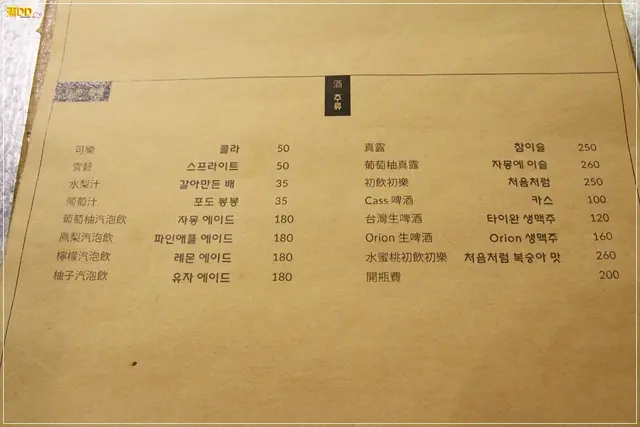 酒 주류
可樂 콜라 50
雪碧 스프라이트 50
水梨汁 갈아만든 배 35
葡萄汁 포도 봉봉 35
葡萄柚汽泡飲 자몽 에이드 180
鳳梨汽泡飲 파인애플 에이드 180
檸檬汽泡飲 레몬 에이드 180
柚子汽泡飲 유자 에이드 180
真露 참이슬 250
葡萄柚真露 자몽에 이슬 260
初飲初樂 처음처럼 250
Cass 啤酒 카스 100
台灣生啤酒 타이완 생맥주 120
Orion 生啤酒 Orion 생맥주 160
水蜜桃初飲初樂 처음처럼 복숭아 맛 260
開瓶費 200